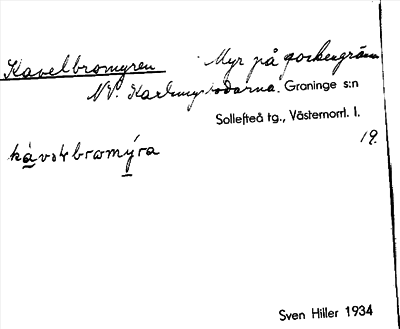 Kavelbromyren Myr på sockengräns
NV. Karlsmyrbodarna. Graninge s:n
Sollefteå tg., Västernorrl. l.
19.
kavəlbromýra
Sven Hiller 1934